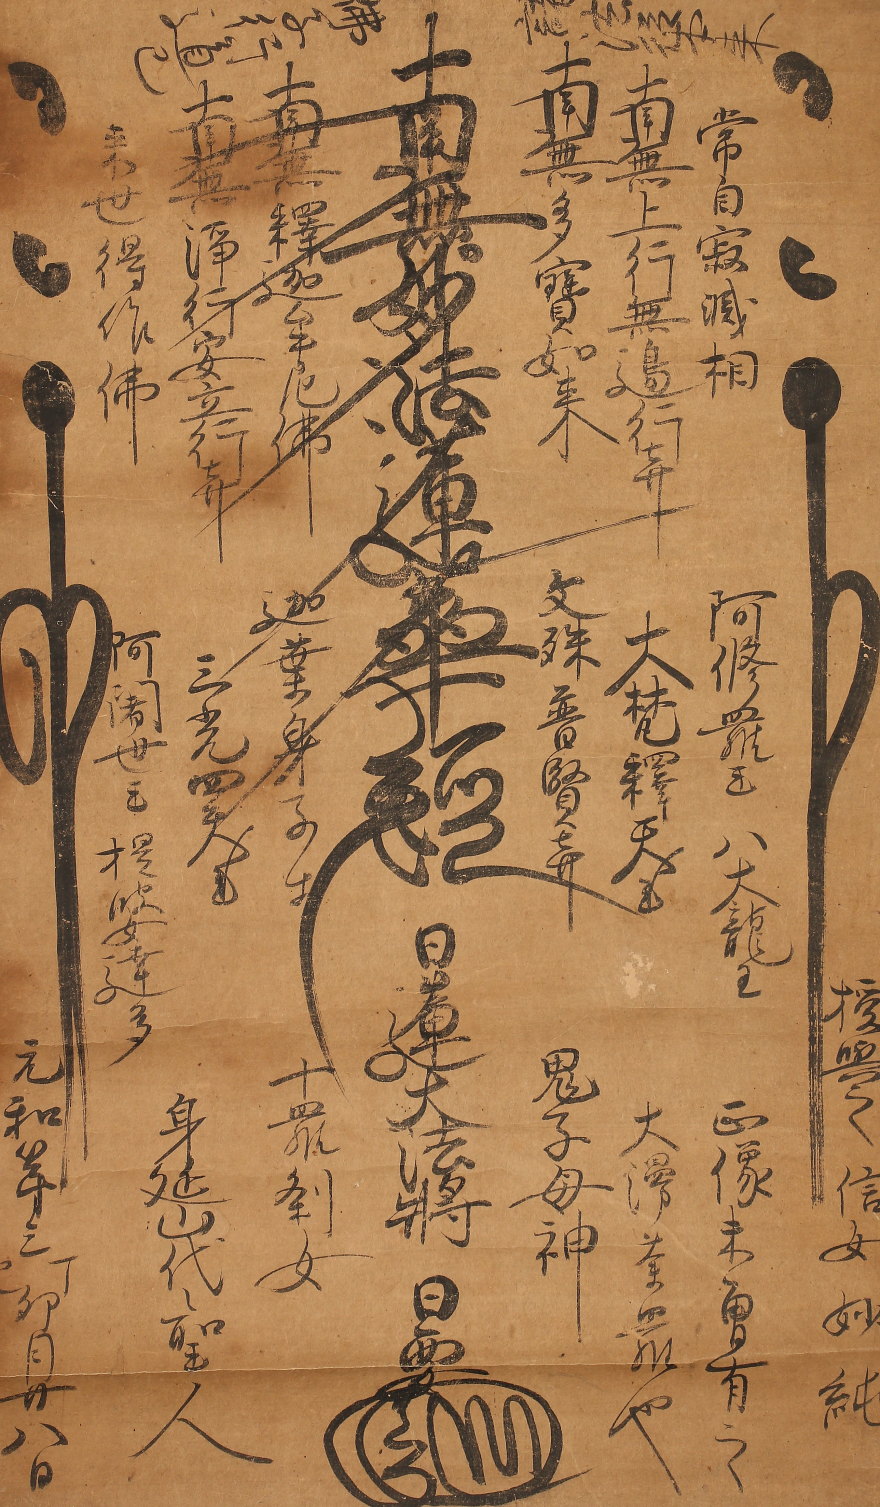 常自寂滅相
南無上行無邊行𦬇
南無多寶如来
南無妙法蓮華經
南無釋迦牟尼佛
南無淨行安立行𦬇
来世得作佛
阿修羅王 八大龍王
大梵釋天王
文殊普賢𦬇
迦葉身子
三光四天王
阿闍世王 提婆達多
授與之 信女妙純
正像未曽有之
大漫荼羅也
鬼子母神
日蓮大法將
日要
十羅刹女
身延山代〻聖人
元和第三丁巳卯月廿八日